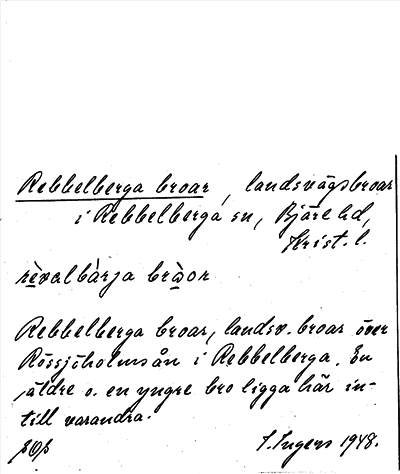 Rebbelberga broar, landsvägsbroar
i Rebbelberga sn, Bjäre hd,
Krist. l.
rèvalbàrja bròɑor
Rebbelberga broar, landsv. broar över
Rössjöholmsån i Rebbelberga. En
äldre o. en yngre bro ligga här in-
till varandra.
I. Ingers 1948.